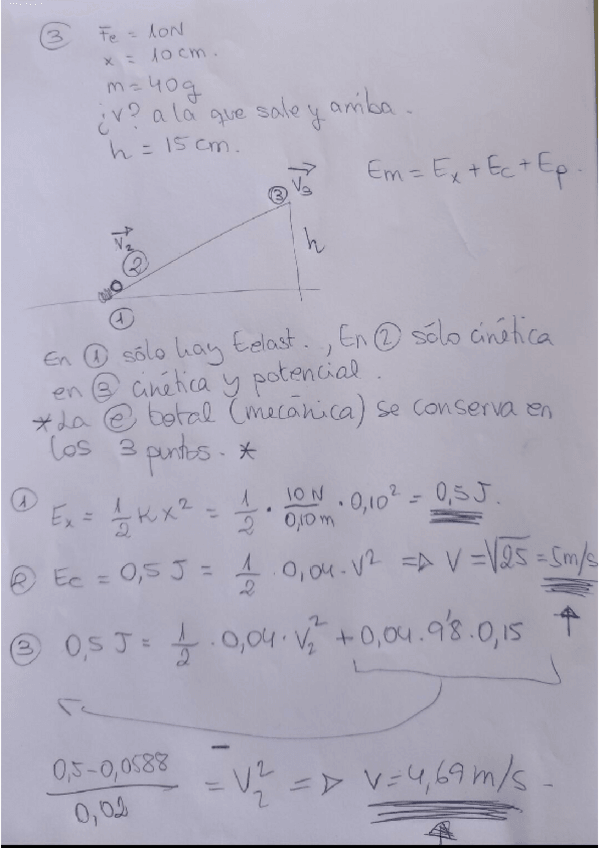 ③ Fe = 10N
x = 10cm.
m = 40g
¿v? a la que sale y arriba.
h = 15cm.
Em = Ex + Ec + Ep.
③ V3
V2
②
h
①
En ① sólo hay Eelast., En ② sólo cinética
en ③ cinética y potencial.
*La ⓔ total (mecánica) se conserva en
los 3 puntos. *
① Ex = 1/2 K x² = 1/2 · 10N/0,10m · 0,10² = 0,5 J.
② Ec = 0,5 J = 1/2 · 0,04 · V² => V = √25 = 5m/s
③ 0,5 J = 1/2 · 0,04 · V2² + 0,04 . 9'8 . 0,15
(0,5-0,0588)/0,02 = V2² => V = 4,69 m/s -